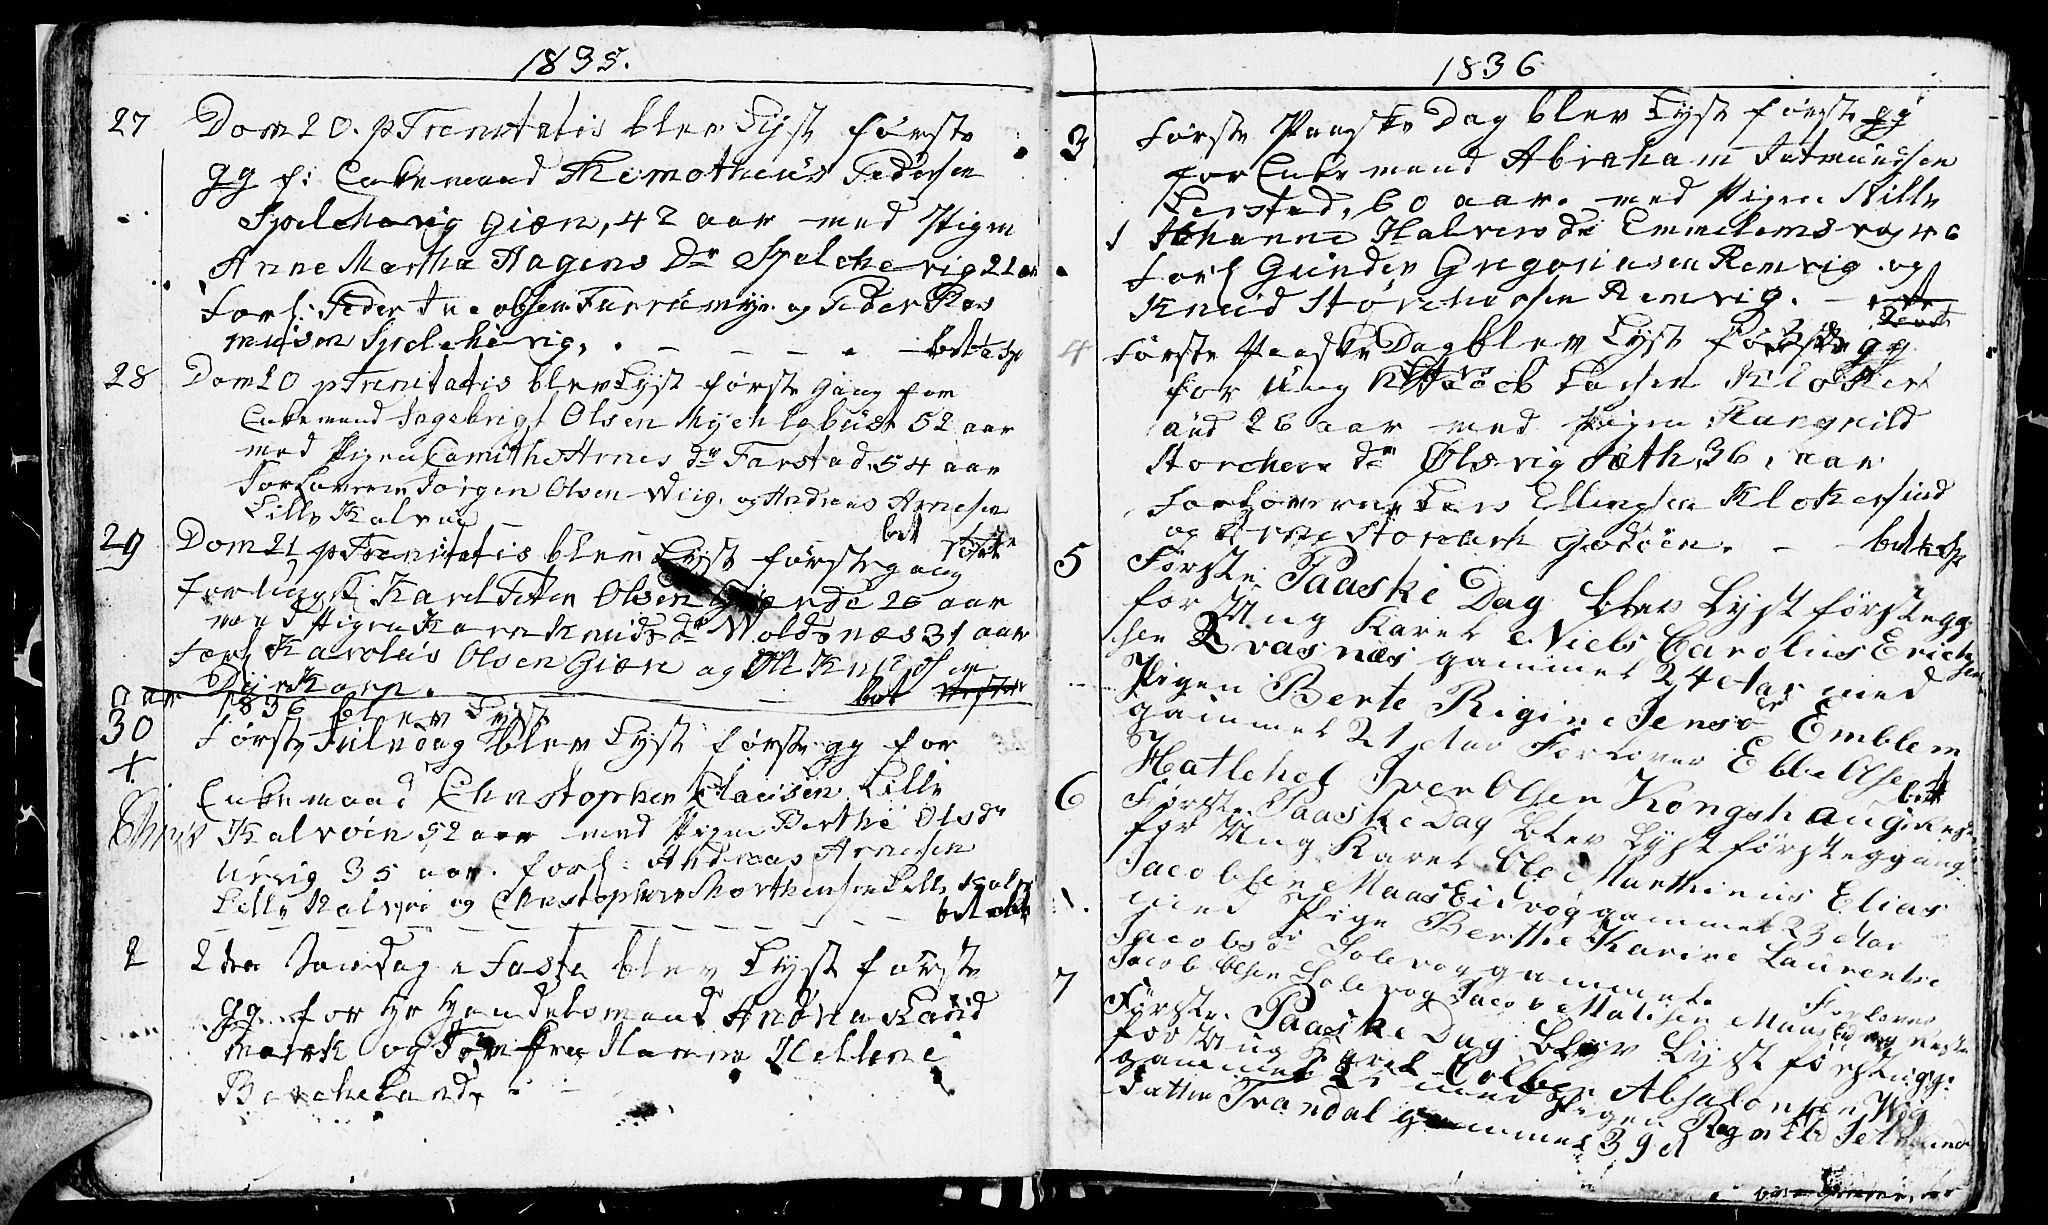 1835.
27 Dom 20. p Trenitatis blev Lyst første
gg f: Enkemand Themotheus Pedersen
Spelchevig Giær, 42 aar med Pigen
Anne Martha Hagens Dr Spelchevig 21 aar
Forl: Peder Jacobsen og Peder Ras
musen Spelchevig. bet
28 Dom 20 p Trenitatis blev Lyst første Gang for
Enkemand Ingebrigt Olsen Mychlebust 52 aar
med Pigen Arnes dr Farstad 54 aar
Forlovere Jørgen Olsen Wiig og Andreas Arnesen
Lille Kalvøe bet
29 Dom 21 p Trenitatis blev Lyst første gang
for ungk: Karl Peter Olsen 26 aar
med Pigen Karen Knuds dr Woldsnæs 31 aar
Forl Karolus Olsen Giære og Ole Knudsen
bet
aar 1836 blev Lyst
30 Første Juledag blev Lyst første gg for
+ Enkemand Christopher Clausen Lille
Kalvøin 52 aar med Pigen Berthe Olsdr
Urvig 35 aar. forl: Andreas Arnesen
Lille Kalvøe og Christopher Morthensen Lille Kalv
bet
2 2den Søndag i Faste blev Lyst første
gg for Hr Handelsmand Andrea Rand
mark og Jomfru Hanna Hellene
Berchelandr
1836
3 Første Paaske Dag blev Lyst første gg
for Enkemand Abraham Jetmundsen
Perstad, 60 aar. med Pigen Sille
Johanne Halvers dr Emmelemsvog 46
Forl Gunder Gregoriusen Remvig og
Knud Størchersen Remvig.
4 Første Paaske Dag blev Lyst første gg
for Ung K Jacob Larsen Klocker
sud 26 aar med Pigen Rangnild
Storcher dr Ølsvig Sæth, 36, aar
Forloverne Lars Ellingsen Klokersund
og Arne Storcark Godøen. bet
5 Første Paaske Dag blev Lyst første gg
for Ung Karl Niels Carolius Erich
sen Qvasnæs gammel 24 Aar med
Pigen Berte Rigine Jensdr Emblem
gammel 21 Aar Forlover Ebbe Olsen
Hatlehol Iver Olsen Kongshaug bet
6 Første Paaske Dag blev Lyst første gg gang
for Ung Karl Ole Marthinus Elias
Jacobsen Maaseidvog gammel 23 Aar
med Pige Berthe Karine Laurentse
Jacobsdr Solevog gammel Forlover
Jacob Olsen Solevog Jacob Matisen Maaseidvog
7 Første Paaske Dag blev Lyst første gg:
for Ung Karl Colben Absalonsen Wog
gammel med Pigen Ragnild Jetmund
datter Trandal gammel 39